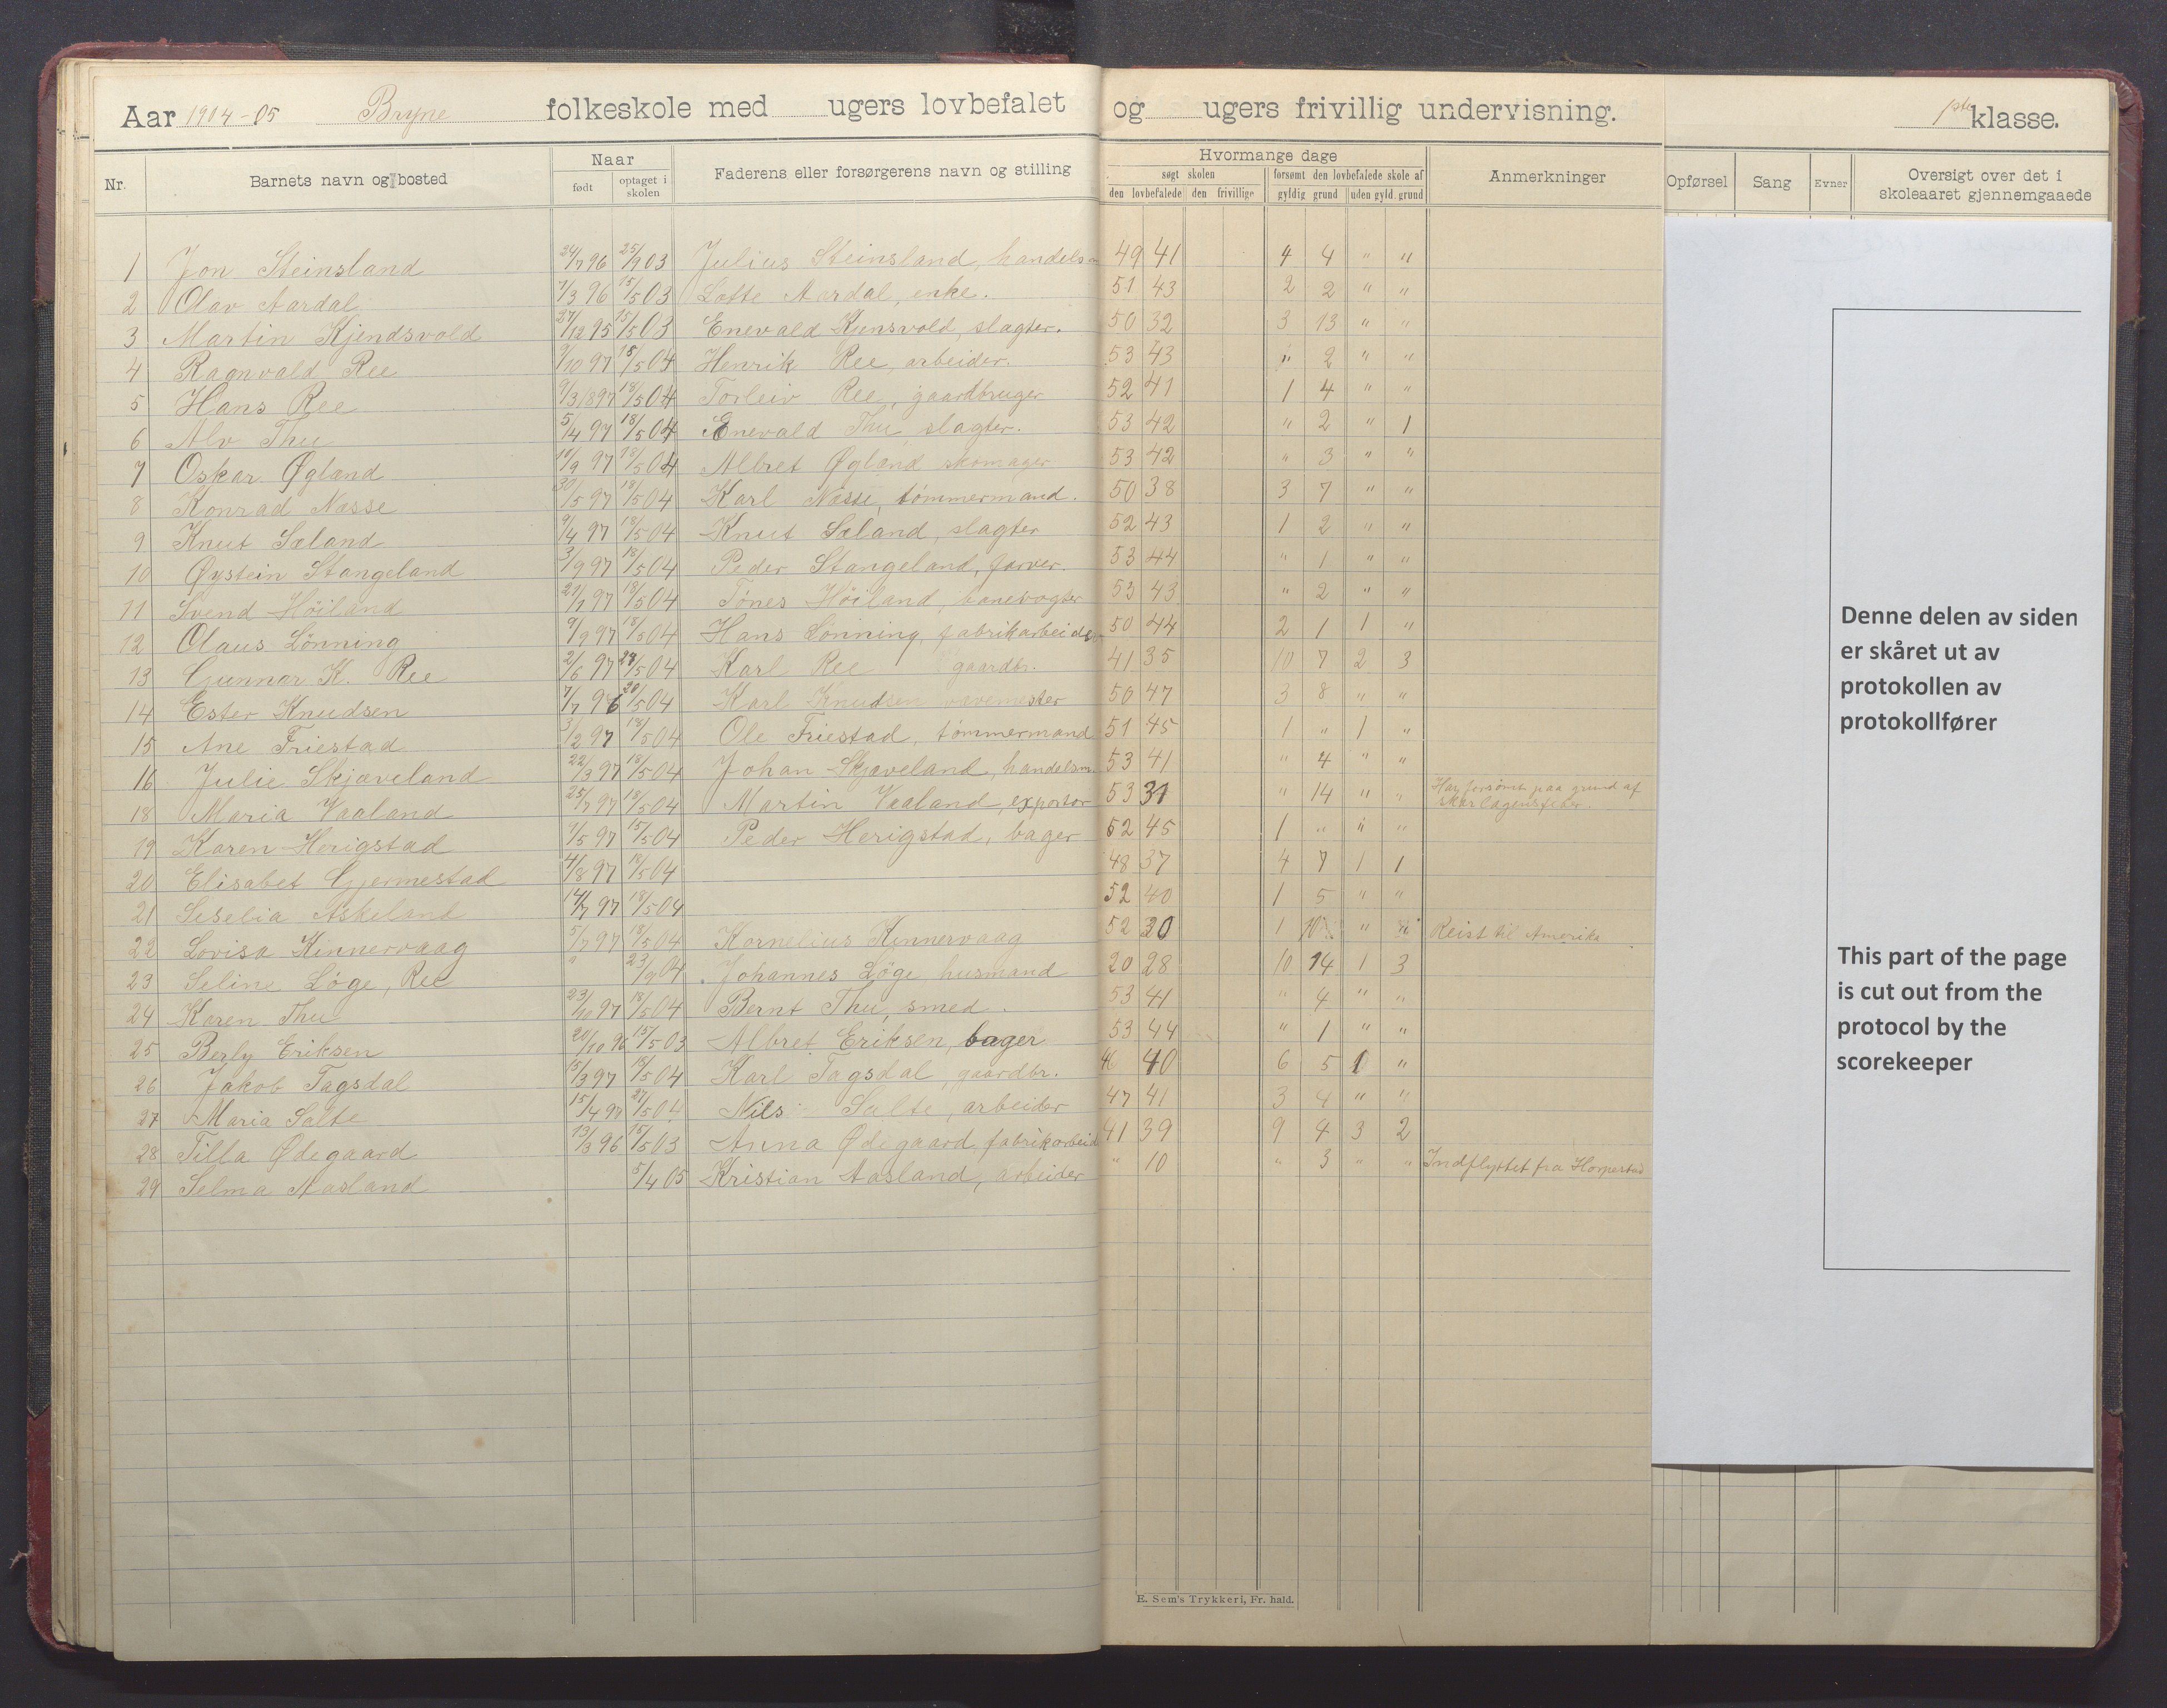 Aar 1904-05 Bryne folkeskole med ugers lovbefalet og ugers frivillig undervisning. 1ste klasse.
Nr. Barnets navn og bosted Naar født optaget i skolen Faderens eller forsørgerens navn og stilling Hvormange dage søgt skolen den lovbefalede den frivillige forsømt den lovbefalede skole af gyldig grund uden gyld. grund Anmerkninger Opførsel Sang Evner Oversigt over det i skoleaaret gjennemgaaede
1 Jon Steinsland 24/7 96 25/9 03 Julius Steinsland, handelsm 49 41 4 4 " "
2 Olav Aardal 7/3 96 15/5 03 Lotte Aardal, enke. 51 43 2 2 " "
3 Martin Kjendsvold 27/12 95 15/5 03 Enevald Kjensvold, slagter. 50 32 3 13 " "
4 Ragnvald Ree 9/10 97 18/5 04 Henrik Ree, arbeider. 53 43 " 2 " "
5 Hans Ree 9/3 1897 18/5 04 Torleiv Ree, gaardbruger 52 41 1 4 " "
6 Alv Thu 5/4 97 18/5 04 Enevald Thu, slagter. 53 42 " 2 " 1
7 Oskar Øgland 10/9 97 18/5 04 Albret Øgland skomager 53 42 " 3 " "
8 Konrad Næsse 30/5 97 18/5 04 Karl Næsse, tömmermand. 50 38 3 7 " "
9 Knut Sæland 9/4 97 18/5 04 Knut Sæland, slagter 52 43 1 2 " "
10 Øystein Stangeland 3/9 97 18/5 04 Peder Stangeland, farver. 53 44 " 1 " "
11 Svend Höiland 27/7 97 18/5 04 Tönes Höiland, banevogter 53 43 " 2 " "
12 Olaus Lönning 9/9 97 18/5 04 Hans Lönning, fabrikarbeider 50 44 2 1 1 "
13 Gunnar K. Ree 2/6 97 24/5 04 Karl Ree gaardbr. 41 35 10 7 2 3
14 Ester Knudsen 7/7 96 20/5 04 Karl Knudsen vævemester 50 47 3 8 " "
15 Ane Friestad 3/2 97 18/5 04 Ole Friestad, tömmermand 51 45 1 " 1 "
16 Julie Skjæveland 22/3 97 18/5 04 Johan Skjæveland, handelsm. 53 41 " 4 " "
18 Maria Vaaland 25/7 97 18/5 04 Martin Vaaland, exportør 53 31 " 14 " " Har forsömt paa grund af skarlagensfeber.
19 Karen Herigstad 4/5 97 15/5 04 Peder Herigstad, bager 52 45 1 " " "
20 Elisabet Gjermestad 4/8 97 18/5 04 48 37 4 7 1 1
21 Seselia Askeland 14/7 97 18/5 04 52 40 1 5 " "
22 Lovisa Kinnervaag 5/7 97 18/5 04 Kornelius Kinnervaag 52 30 1 10 " " Reist til Amerika
23 Seline Löge, Ree " 23/9 04 Johannes Löge, husmand 20 28 10 14 1 3
24 Karen Thu 23/10 97 18/5 04 Bernt Thu, smed. 53 41 " 4 " "
25 Berly Eriksen 20/10 96 15/5 03 Albret Eriksen, bager 53 44 " 1 " "
26 Jakob Tagsdal 3/3 97 18/5 04 Karl Tagsdal, gaardbr. 46 40 6 5 1 "
27 Maria Salte 15/4 97 27/5 04 Nils Salte, arbeider 47 41 3 4 " "
28 Tilla Ødegaard 13/3 96 15/5 03 Anna Ødegaard fabrikarbeid 41 39 9 4 3 2
29 Selma Aasland 5/4 05 Kristian Aasland, arbeider " 10 " 3 " " Indflyttet fra Horpestad
E. Sem's Trykkeri, Fr. hald.
Denne delen av siden
er skåret ut av
protokollen av
protokollfører
This part of the page
is cut out from the
protocol by the
scorekeeper